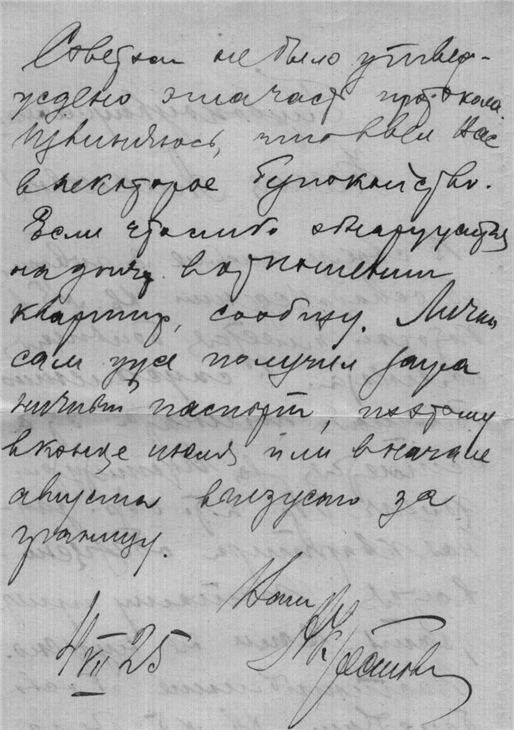 Советом не было утверж-
ждено эта часть протокола.
Извиняюсь, что ввел Вас
в некоторое безпокойство.
Если что либо обнаружится
на дому в отношении
квартир, сообщу. Лично
сам уже получил загра
ничный паспорт, поэтому
в конце июля или в начале
августа выезжаю за
границу.
Ваш
4/VII 25